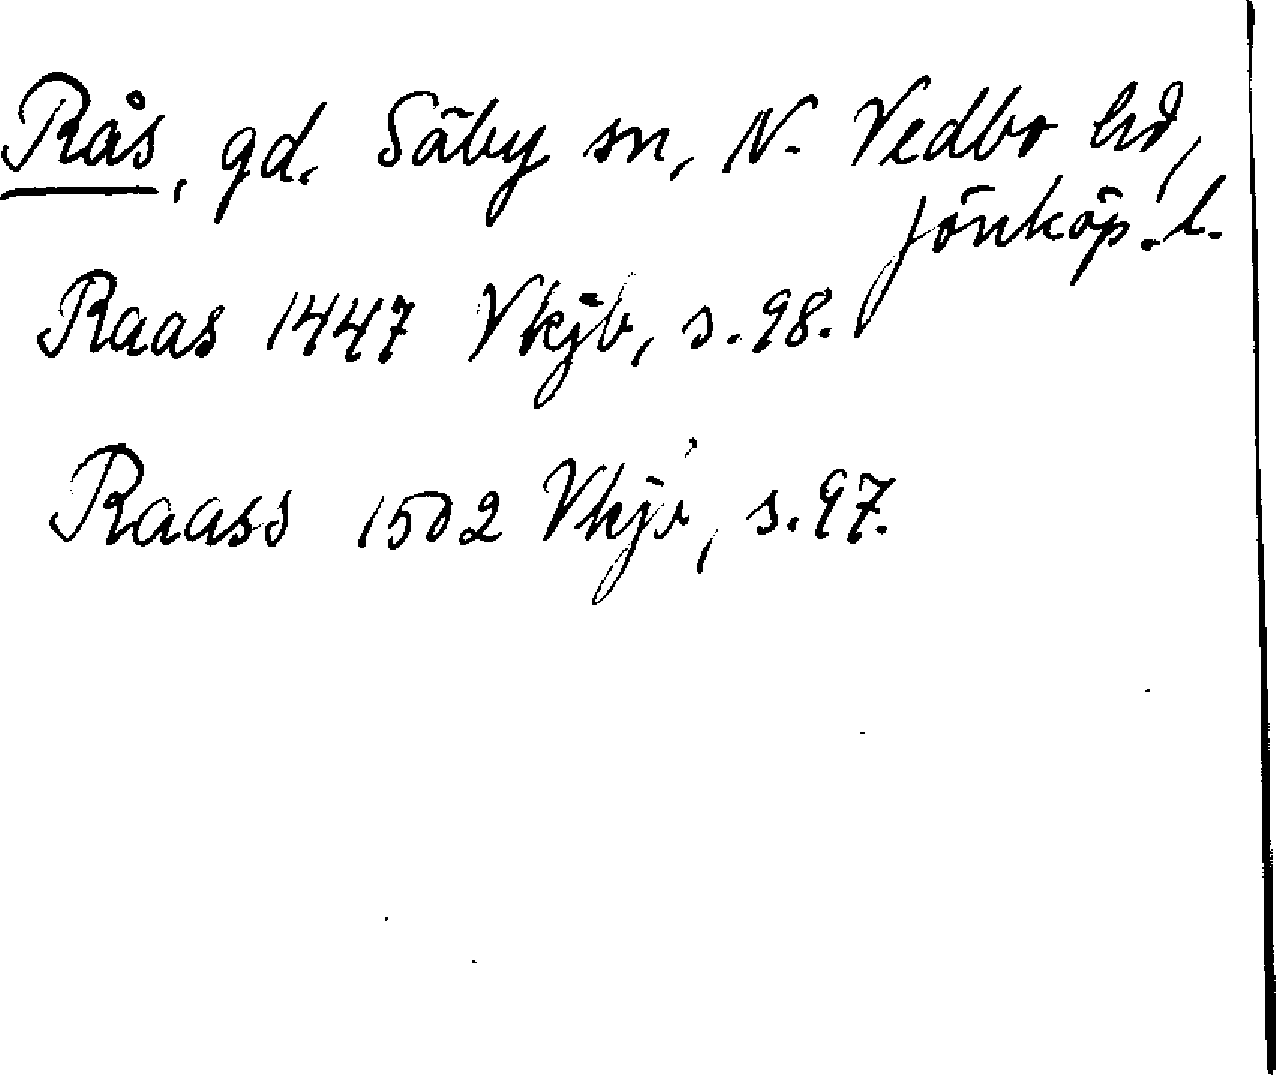 Rås, gd. Säby sn, N. Vedbo hd,
Jönköp. l.
Raas 1447 Vkjb, s. 98.
Raass 1502 Vkjb, s. 97.